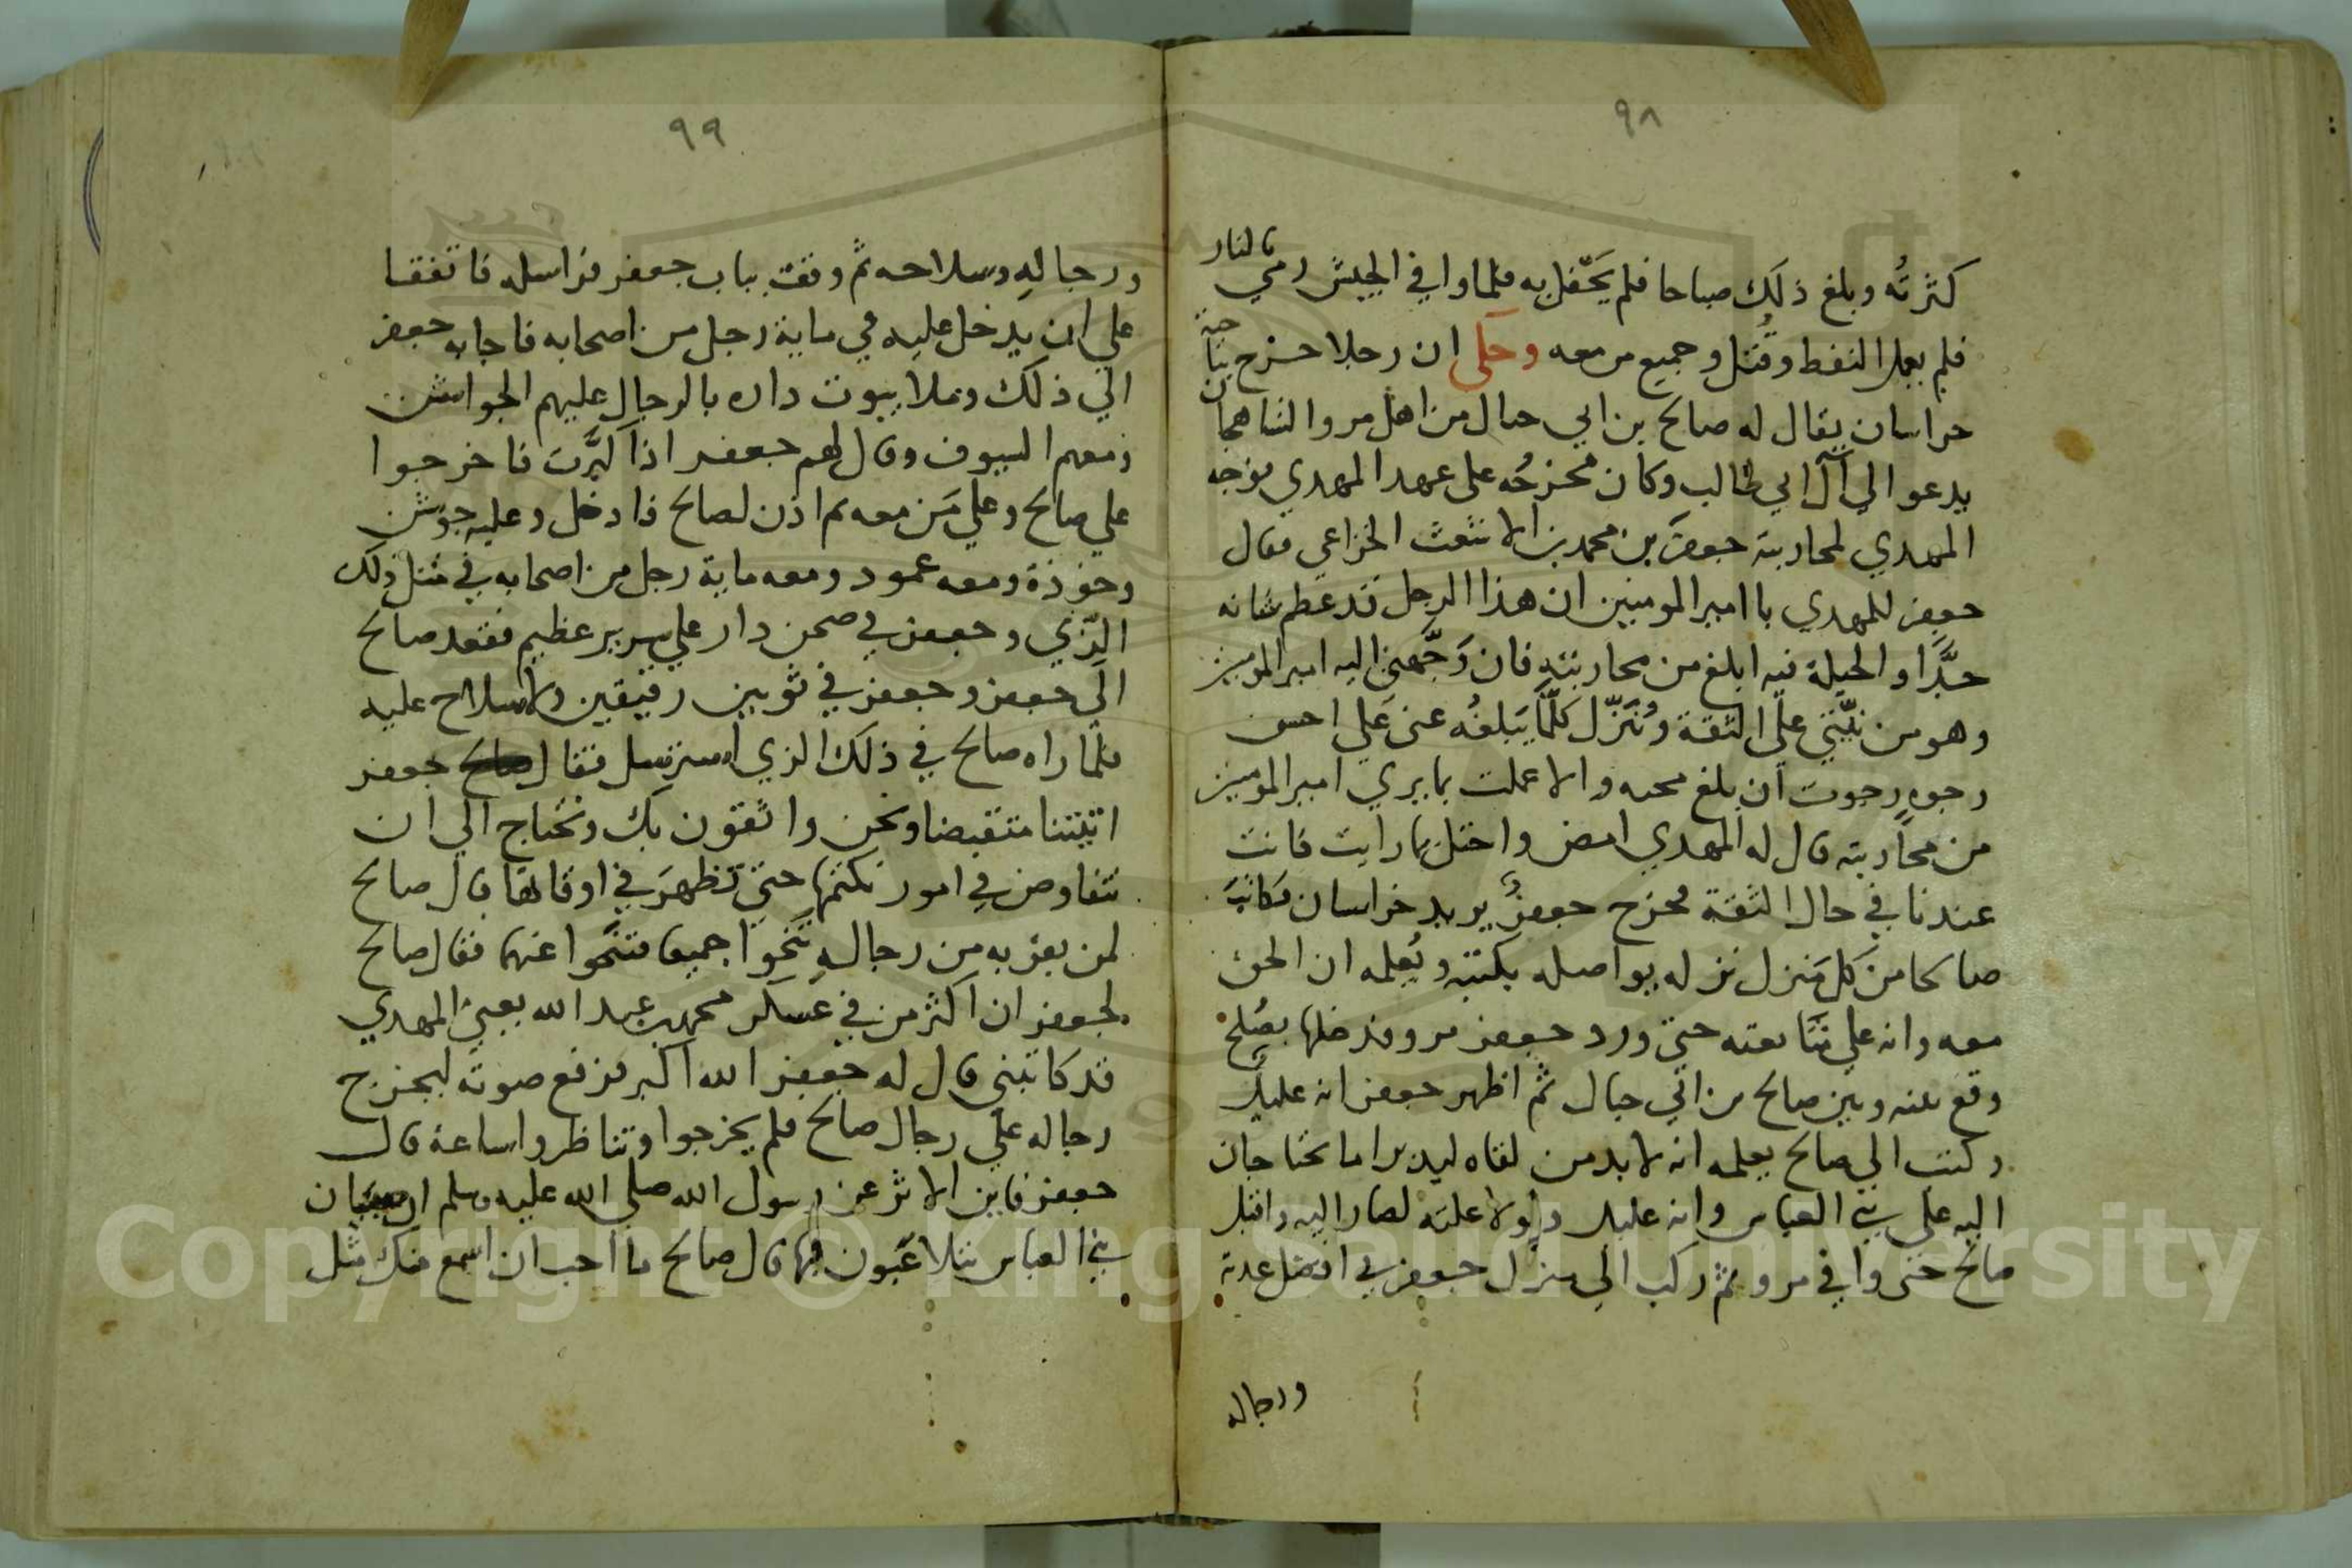 ٩٨
كثرتُه وبلغ ذلك صباحا فلم يَحْفل به فلما وافي الجيش رمي بالنار
فلم يعمل النفط وقُتل وجميع من معه وحكى ان رجلا خرج بناحية
خراسان يقال له صالح بن ابي حبال من اهل مرو الشاهجان
يدعو الي آل ابي طالب وكان مخرجُه على عهد المهدي فوجه
المهدي لمحاربته جعفر بن محمد بن الاشعث الخزاعي فقال
جعفر للمهدي يا امير المومنين ان هذا الرجل قد عظم شانه
جدًّا والحيلة فيه ابلغ من محاربته فان وَجَّهني اليه امير المومنين
وهو من نيّتي علي الثقة ونزّل كلّما يَبلغُه عني عَلي احسن
وجوهٍ رجوت ان ابلغ محبه والا عملت بما يري امير المومنين
من محاربته قال له المهدي امض واحتل بما رايت فانت
عندنا في حال الثقة فخرج جعفرٌ يريد خراسان فكاتبَ
صالحا من كل منزل نزله يواصله بكتبه ويُعلمه ان الحق
معه وانه علي متابعته حتي ورد جعفر مرو فدخلها بصُلح
وقع بينه وبين صالح بن ابي حبال ثم اظهر جعفر انه عليل
وكتب الي صالح يعلمه انه لا بد من لقاه ليدبرا ما يحتاجان
اليه علي بني العباس وانه عليل ولولا علته لصار اليه واقبل
صالح حتى وافي مرو ثم ركب الي منزل جعفر في افضل عدته
ورجاله
٩٩
ورجالهِ وسلاحه ثم وقف بباب جعفر فراسله فاتفقا
علي ان يدخل عليه في ماية رجل من اصحابه فاجابه جعفر
الي ذلك وملا بيوت داره بالرجال عليهم الجواشن
ومعهم السيوف وقال لهم جعفر اذا كبَّرت فاخرجوا
علي صالح وعلي مَن معه ثم اذن لصالح فادخل وعليه جوشن
وخوذة ومعه عمود ومعه ماية رجل من اصحابه في مثل ذلك
الزّي وجعفر في صحن دار علي سرير عظيم فقعد صالح
الي جعفر وجعفر في ثوبين رقيقين ولا سلاح عليه
فلما راه صالح في ذلك الزي استرسل فقال جعفر
اتيتنا متقبضا ونحن واثقون بك ونحتاج الي ان
نتفاوض في امور نكتمها حتي تظهرَ في اوقاتها قال صالح
لمن بقربه من رجالهِ تَنَحَّوا جميعا فتنحَّوا عنهما فقال صالح
لجعفر ان اكثر من في عسكر محمد بن عبد الله يعني المهدي
قد كاتبني قال له جعفر الله اكبر فرفع صوته ليخرج
رجاله علي رجال صالح فلم يخرجوا وتناظروا ساعة قال
جعفر فاين الاثر عن رسول الله صلي الله عليه وسلم ان صبيان
بني العباس يتلاعَبون بها قال صالح ما احب ان اسمع منك مثل